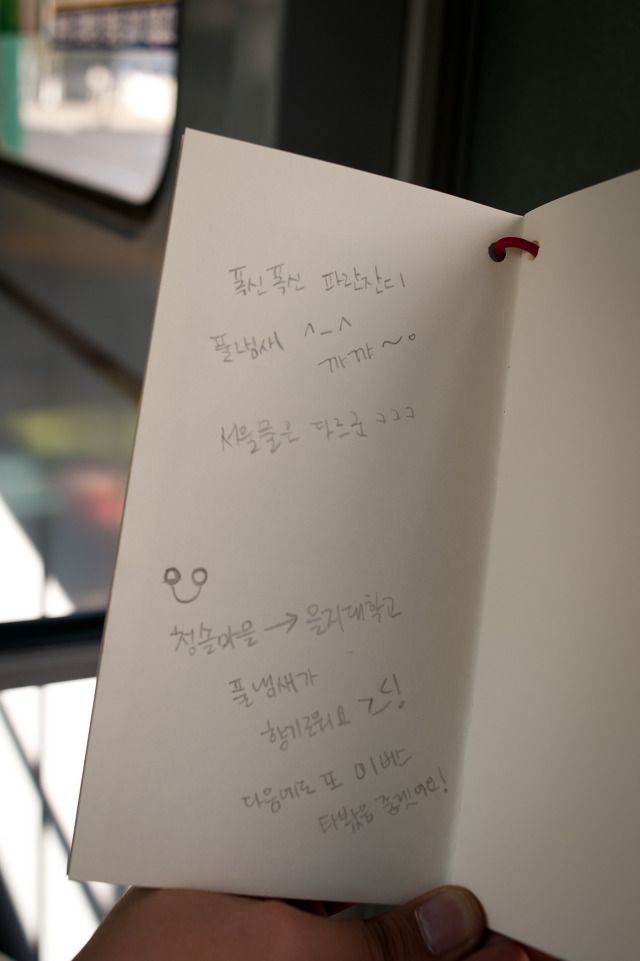 폭신폭신 파란잔디
풀냄새 ^_^
까까~。
서울물은 다르군 ㅋㅋㅋ
청솔마을 → 을지대학교
풀냄새가
향기로워요 >_<!
다음에도 또 이버스
타봤음 좋겟어요!